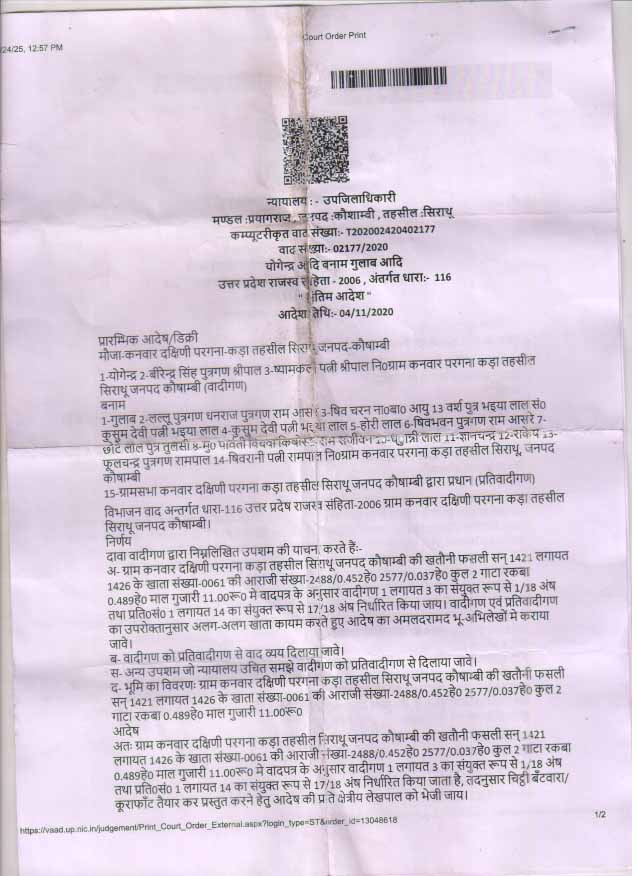 24/25, 12:57 PM
Court Order Print
न्यायालय :- उपजिलाधिकारी
मण्डल :प्रयागराज , जनपद :कौशाम्बी , तहसील :सिराथू
कम्प्यूटरीकृत वाद संख्या:- T202002420402177
वाद संख्या:- 02177/2020
योगेन्द्र आदि बनाम गुलाब आदि
उत्तर प्रदेश राजस्व संहिता - 2006 , अंतर्गत धारा:- 116
" अंतिम आदेश "
आदेश तिथि:- 04/11/2020
प्रारम्भिक आदेष/डिक्री
मौजा-कनवार दक्षिणी परगना-कड़ा तहसील सिराथू जनपद-कौषाम्बी
1-योगेन्द्र 2-बीरेन्द्र सिंह पुत्रगण श्रीपाल 3-ष्यामकली पत्नी श्रीपाल नि0ग्राम कनवार परगना कड़ा तहसील
सिराथू जनपद कौषाम्बी (वादीगण)
बनाम
1-गुलाब 2-लल्लू पुत्रगण धनराज पुत्रगण राम आसरे 3-षिव चरन ना0बा0 आयु 13 वर्श पुत्र भइया लाल सं0
कुसुम देवी पत्नी भइया लाल 4-कुसुम देवी पत्नी भइया लाल 5-होरी लाल 6-षिवभवन पुत्रगण राम आसरे 7-
छोटे लाल पुत्र तुलसी 8-मु0 पार्वती बिधवा राम सजीवन लाल 11-ज्ञानचन्द्र 12-राकेष 13-
फूलचन्द्र पुत्रगण रामपाल 14-षिवरानी पत्नी रामपाल नि0ग्राम कनवार परगना कड़ा तहसील सिराथू, जनपद
कौषाम्बी
15-ग्रामसभा कनवार दक्षिणी परगना कड़ा तहसील सिराथू जनपद कौषाम्बी द्वारा प्रधान (प्रतिवादीगण)
विभाजन वाद अन्तर्गत धारा-116 उत्तर प्रदेष राजस्व संहिता-2006 ग्राम कनवार दक्षिणी परगना कड़ा तहसील
सिराथू जनपद कौषाम्बी।
निर्णय
दावा वादीगण द्वारा निम्नलिखित उपशम की याचना करते हैः-
अ- ग्राम कनवार दक्षिणी परगना कड़ा तहसील सिराथू जनपद कौषाम्बी की खतौनी फसली सन् 1421 लगायत
1426 के खाता संख्या-0061 की आराजी संख्या-2488/0.452हे0 2577/0.037हे0 कुल 2 गाटा रकबा
0.489हे0 माल गुजारी 11.00रू0 मे वादपत्र के अनुसार वादीगण 1 लगायत 3 का संयुक्त रूप से 1/18 अंष
तथा प्रति0सं0 1 लगायत 14 का संयुक्त रूप से 17/18 अंष निर्धारित किया जाय। वादीगण एवं प्रतिवादीगण
का उपरोक्तानुसार अलग-अलग खाता कायम करते हुए आदेष का अमलदरामद भू-अभिलेखों मे कराया
जावे।
ब- वादीगण को प्रतिवादीगण से वाद व्यय दिलाया जावे।
स- अन्य उपशम जो न्यायालय उचित समझे वादीगण को प्रतिवादीगण से दिलाया जावे।
द- भूमि का विवरणः ग्राम कनवार दक्षिणी परगना कड़ा तहसील सिराथू जनपद कौषाम्बी की खतौनी फसली
सन् 1421 लगायत 1426 के खाता संख्या-0061 की आराजी संख्या-2488/0.452हे0 2577/0.037हे0 कुल 2
गाटा रकबा 0.489हे0 माल गुजारी 11.00रू0
आदेष
अतः ग्राम कनवार दक्षिणी परगना कड़ा तहसील सिराथू जनपद कौषाम्बी की खतौनी फसली सन् 1421
लगायत 1426 के खाता संख्या-0061 की आराजी संख्या-2488/0.452हे0 2577/0.037हे0 कुल 2 गाटा रकबा
0.489हे0 माल गुजारी 11.00रू0 मे वादपत्र के अनुसार वादीगण 1 लगायत 3 का संयुक्त रूप से 1/18 अंष
तथा प्रति0सं0 1 लगायत 14 का संयुक्त रूप से 17/18 अंष निर्धारित किया जाता है, तदनुसार चिट्ठी बँटवारा/
कूराफाँट तैयार कर प्रस्तुत करने हेतु आदेष की प्रति क्षेत्रीय लेखपाल को भेजी जाय।
https://vaad.up.nic.in/judgement/Print_Court_Order_External.aspx?login_type=ST&order_id=13048618
1/2